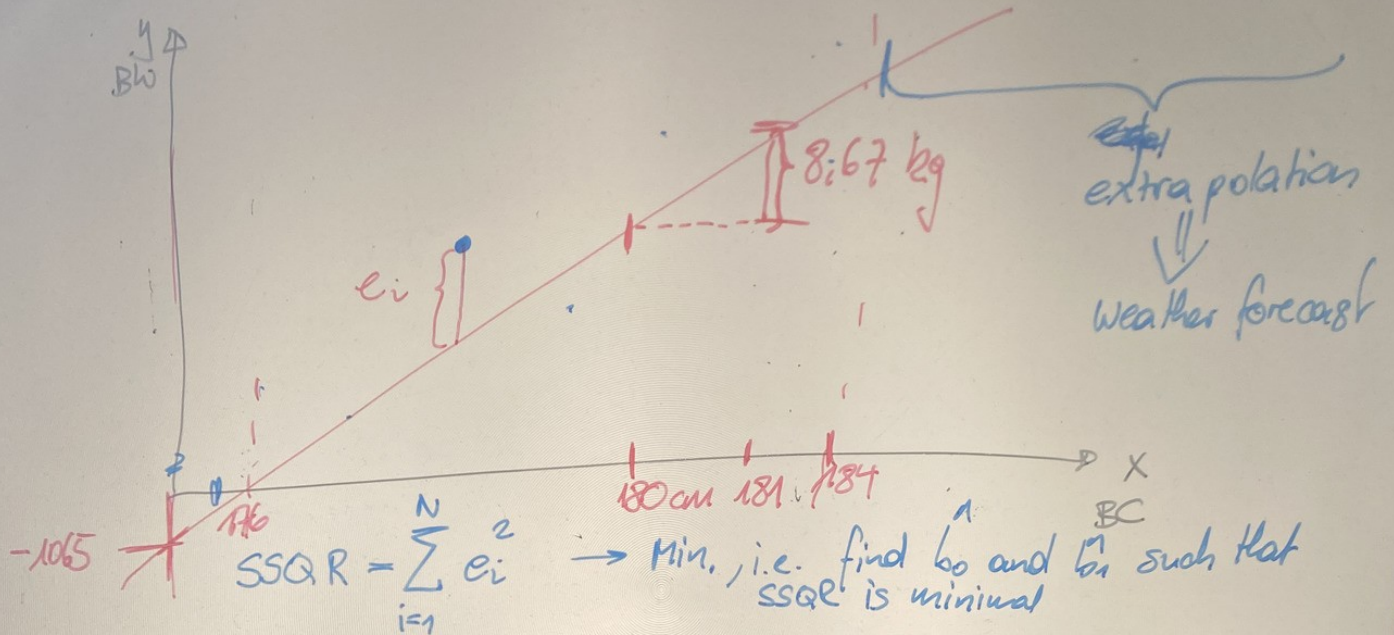 y
BW
8,67 kg
extrapolation
weather forecast
ei
180 cm 181 184
X
176
BC
-1065
SSQR = N∑i=1 ei² → Min., i.e. find b̂0 and b̂1 such that
SSQR is minimal